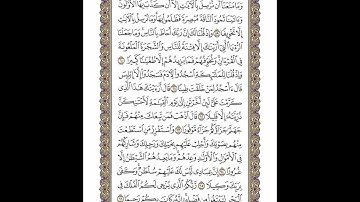 وَمَا مَنَعَنَآ أَن نُّرْسِلَ بِٱلْءَايَٰتِ إِلَّآ أَن كَذَّبَ بِهَا ٱلْأَوَّلُونَ
وَءَاتَيْنَا ثَمُودَ ٱلنَّاقَةَ مُبْصِرَةً فَظَلَمُوا۟ بِهَا وَمَا نُرْسِلُ بِٱلْءَايَٰتِ
إِلَّا تَخْوِيفًا ٥٩ وَإِذْ قُلْنَا لَكَ إِنَّ رَبَّكَ أَحَاطَ بِٱلنَّاسِ وَمَا جَعَلْنَا
ٱلرُّءْيَا ٱلَّتِىٓ أَرَيْنَٰكَ إِلَّا فِتْنَةً لِّلنَّاسِ وَٱلشَّجَرَةَ ٱلْمَلْعُونَةَ
فِى ٱلْقُرْءَانِ وَنُخَوِّفُهُمْ فَمَا يَزِيدُهُمْ إِلَّا طُغْيَٰنًا كَبِيرًا ٦٠
وَإِذْ قُلْنَا لِلْمَلَٰٓئِكَةِ ٱسْجُدُوا۟ لِءَادَمَ فَسَجَدُوٓا۟ إِلَّآ إِبْلِيسَ
قَالَ ءَأَسْجُدُ لِمَنْ خَلَقْتَ طِينًا ٦١ قَالَ أَرَءَيْتَكَ هَٰذَا ٱلَّذِى
كَرَّمْتَ عَلَىَّ لَئِنْ أَخَّرْتَنِ إِلَىٰ يَوْمِ ٱلْقِيَٰمَةِ لَأَحْتَنِكَنَّ
ذُرِّيَّتَهُۥٓ إِلَّا قَلِيلًا ٦٢ قَالَ ٱذْهَبْ فَمَن تَبِعَكَ مِنْهُمْ فَإِنَّ
جَهَنَّمَ جَزَآؤُكُمْ جَزَآءً مَّوْفُورًا ٦٣ وَٱسْتَفْزِزْ مَنِ ٱسْتَطَعْتَ
مِنْهُم بِصَوْتِكَ وَأَجْلِبْ عَلَيْهِم بِخَيْلِكَ وَرَجِلِكَ وَشَارِكْهُمْ
فِى ٱلْأَمْوَٰلِ وَٱلْأَوْلَٰدِ وَعِدْهُمْ وَمَا يَعِدُهُمُ ٱلشَّيْطَٰنُ إِلَّا
غُرُورًا ٦٤ إِنَّ عِبَادِى لَيْسَ لَكَ عَلَيْهِمْ سُلْطَٰنٌ وَكَفَىٰ
بِرَبِّكَ وَكِيلًا ٦٥ رَّبُّكُمُ ٱلَّذِى يُزْجِى لَكُمُ ٱلْفُلْكَ فِى
ٱلْبَحْرِ لِتَبْتَغُوا۟ مِن فَضْلِهِۦٓ إِنَّهُۥ كَانَ بِكُمْ رَحِيمًا ٦٦